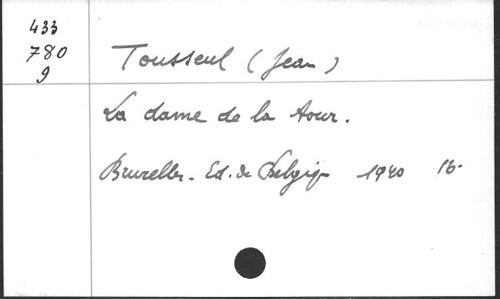 433
780
9
Tousseul (Jean)
La dame de la tour.
Bruxelles. Ed. de Belgiq 1940 16-